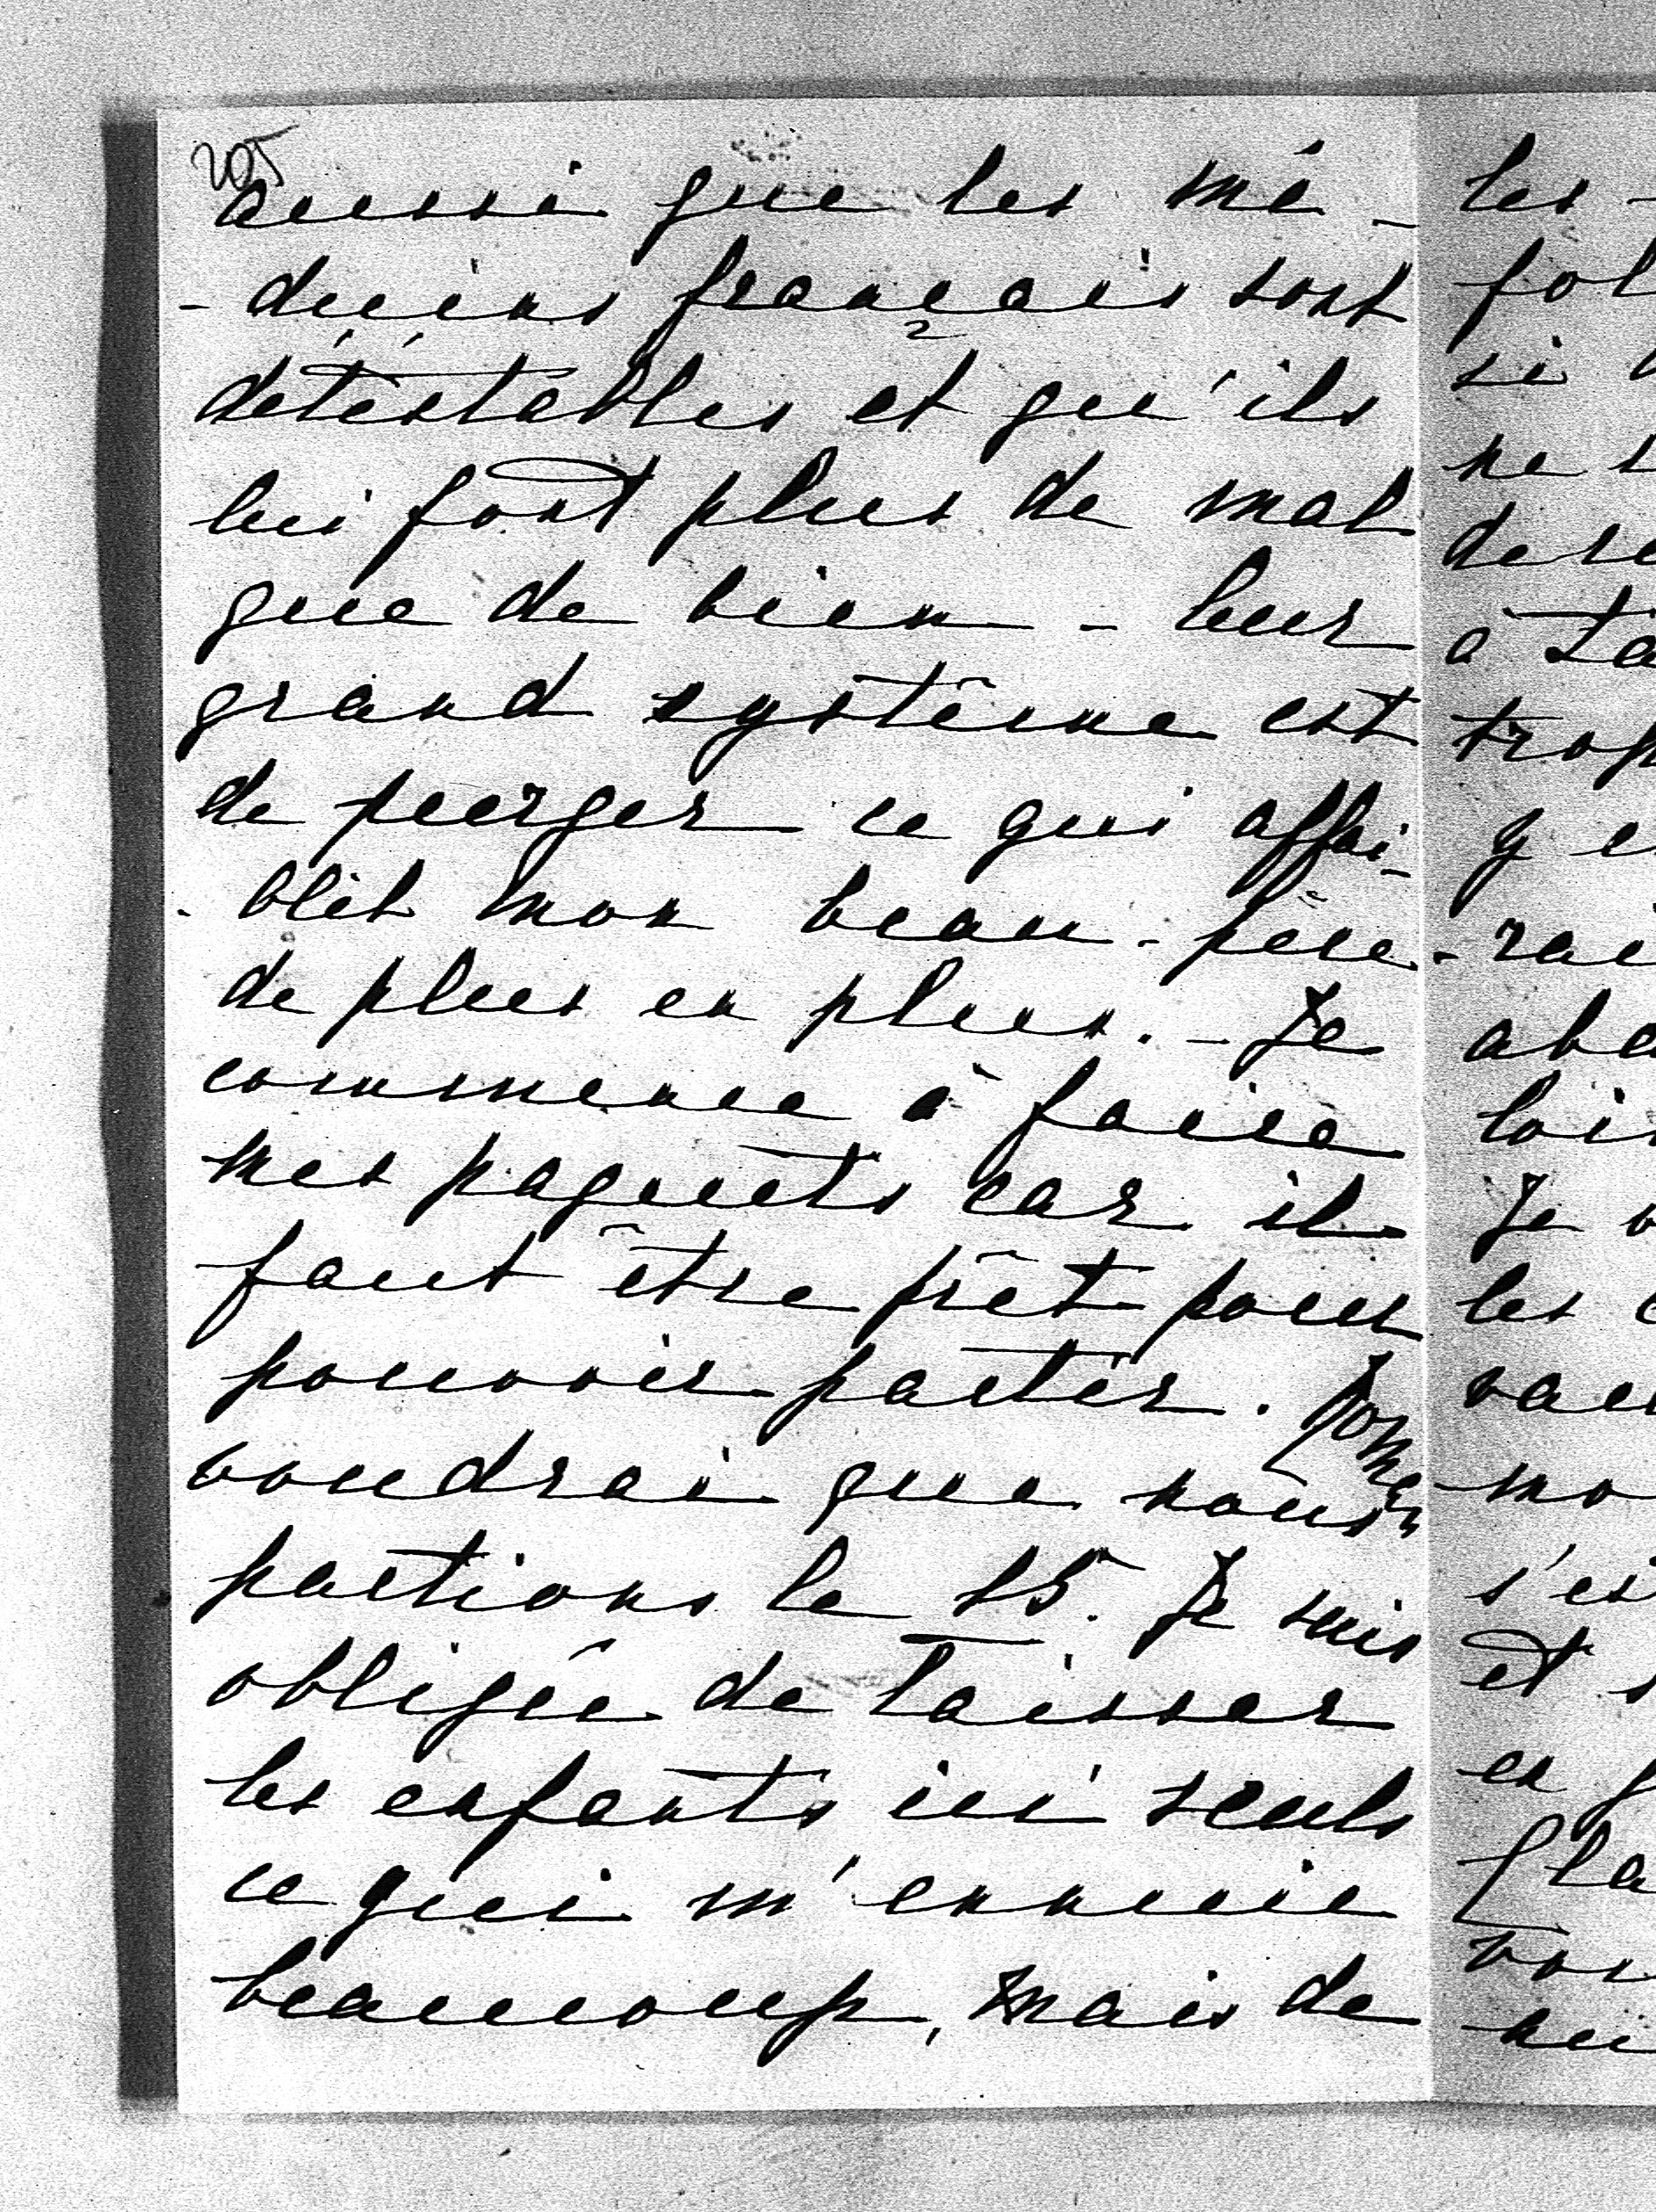 205
aussi que les mé-
-decins français sont
détéstables et qu'ils
lui font plus de mal
que de bien - leur
grand système est
de purger ce qui affai-
-blit mon beau-père
de plus en plus. - Je
commence à faire
mes paquets car il
faut être prêt pour
pouvoir partir.
voudrai que nous
partions le 15. Je suis
obligée de laisser
les enfants ici seuls
ce qui m'ennuie
beaucoup, mais de
les -
si
à
Je
les
et
en